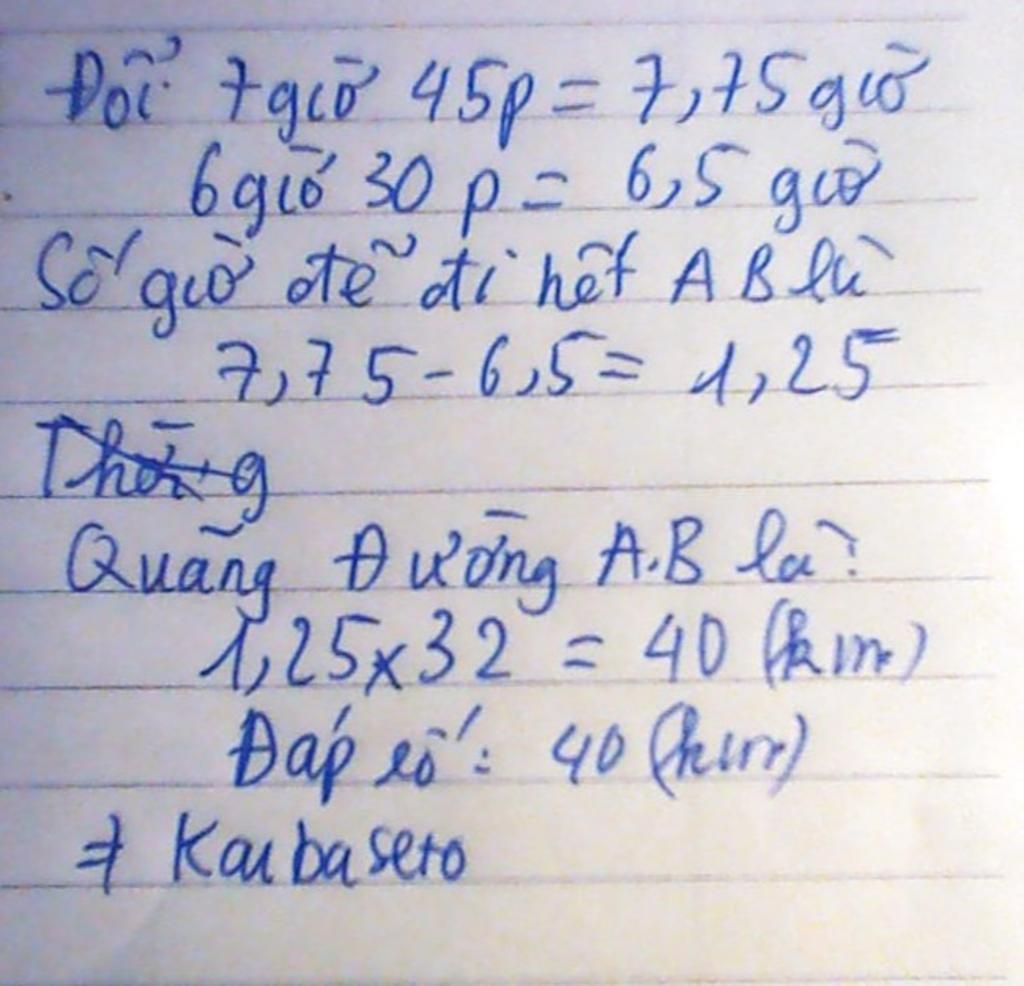 Đổi 7 giờ 45p = 7,75 giờ
6 giờ 30 p = 6,5 giờ
Số giờ để đi hết AB là
7,75 - 6,5 = 1,25
Quãng Đường A.B là:
1,25 x 32 = 40 (km)
Đáp số: 40 (km)
⇒ Kaibasero